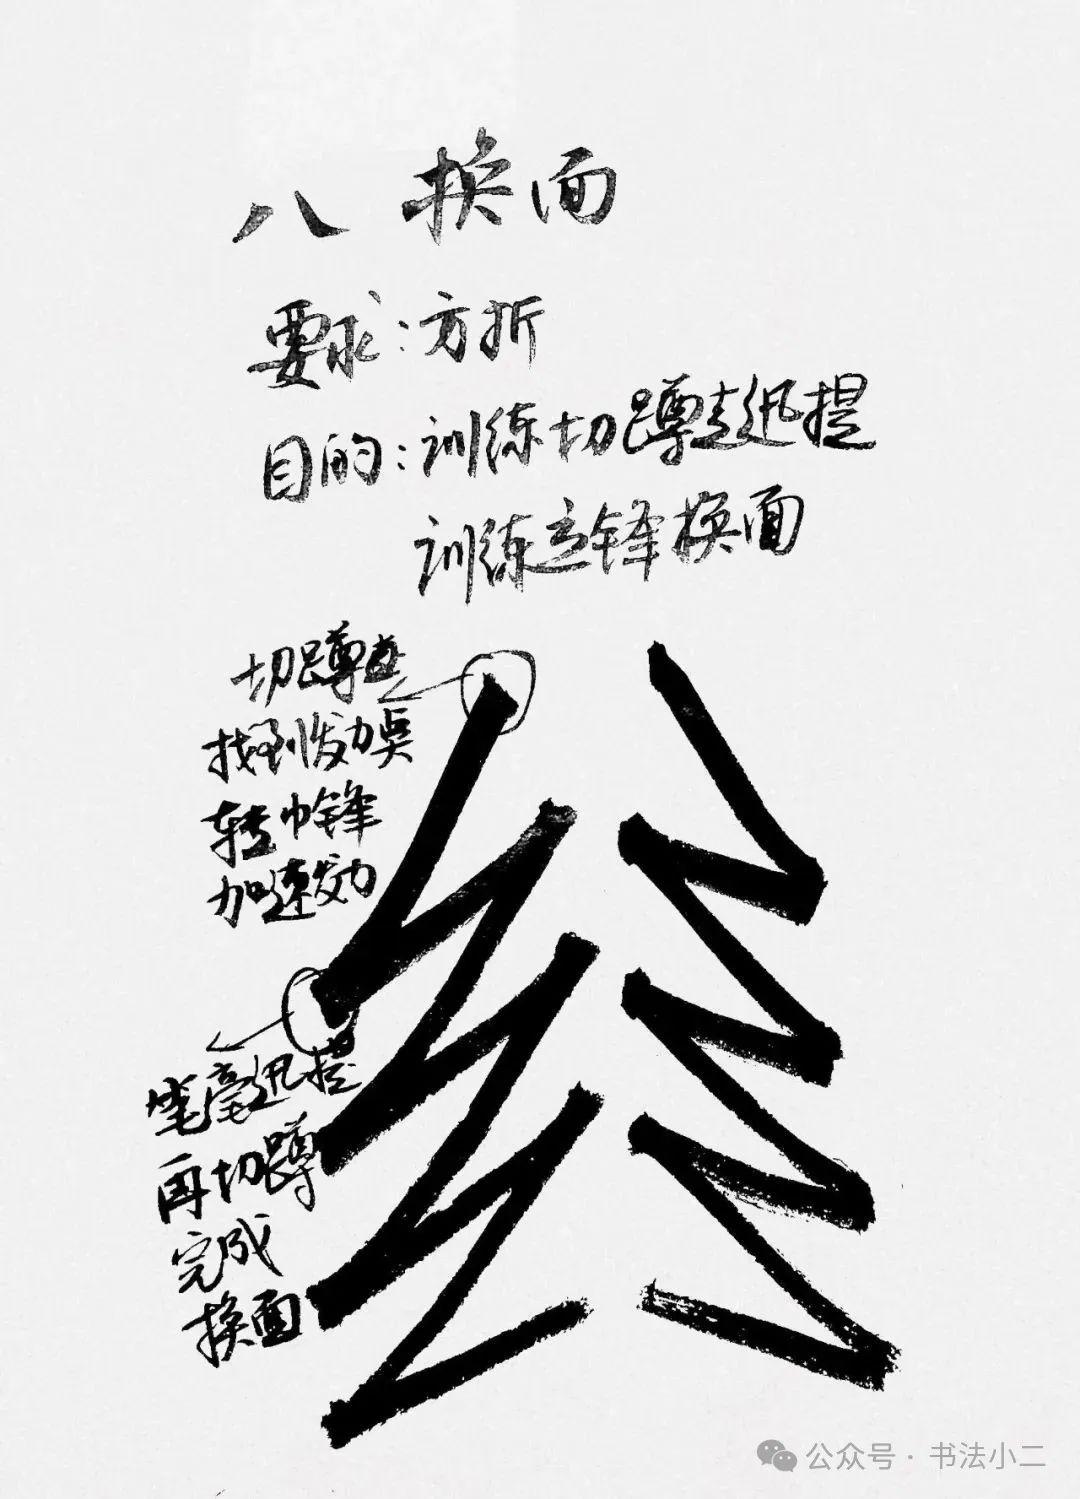 八 换面
要求：方折
目的：训练切蹲起迅提
训练立锋换面
切蹲起
找到发力点
转中锋
加速发力
笔毫迅提
再切蹲
完成
换面
公众号·书法小二